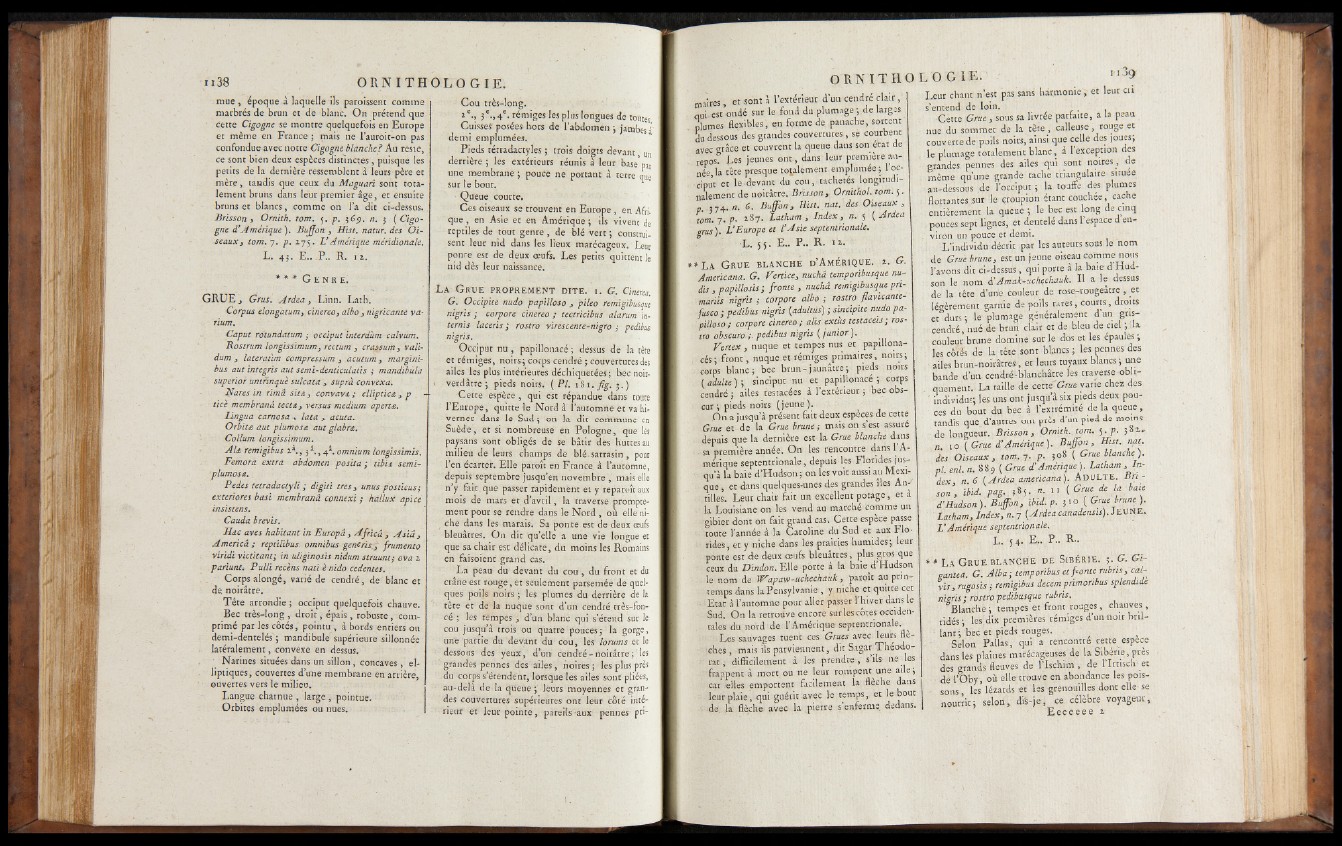 1138 ORNITHOLOGIE.
mue, époque à laquelle ils paroissent comme
marbrés de brun et de blanc. On prétend que
cette Cigogne se montre quelquefois en Europe
et même en France ; mais ne l'auroit-on pas
confondue avec notre Cigogne blanche? Au reste,
ce sont bien deux espèces distinctes, puisque les
petits de la dernière ressemblent à leurs père et
mère, tandis que ceux du Maguari sont tota-
lement bruns dans leur premier âge, et ensuite
bruns et blancs, comme on l'a dit ci-dessus.
Brisson, Ornith. tom. 5. p. 369. n. 3 (Cigo-
gne d'Amérique). Buffon, Hist. natur. des Oi-
seaux, tom. 7. p. 275. L'Amérique méridionale.
L. 43. E.. P.. R. 12.
*** GENRE.
GRUE, Grus. Ardea, Linn. Lath.
Corpus elongatum, cinereo, albo, nigricante va-
rium.
Caput rotundatum ; occiput interdùm calvum.
Rostrum longissimum, rectum, crassum, vali-
dum, lateratim compressum, acutum, margini-
bus aut integris aut semi-denticulatis ; mandibula
superior utrinquè sulcata, suprà convexa.
Nares in rimâ sita, concava ; elliptica, p
ticè membranâ tecta, versus medium aperta.
Lingua carnosa, lata, acuta.
Orbita aut plumosa aut glabra.
Collum longissimum.
Ala remigibus 2ª., 3ª., 4ª. omnium longissimis.
Femora extra abdomen posita ; tibia semi-
plumosa.
Pedes tetradactyli ; digiti tres, unus posticus ;
exteriores basi membranâ connexi ; hallux apice
insistens.
Cauda brevis.
Hac aves habitant in Europâ, Africâ, Asiâ,
Americâ ; reptilibus omnibus generis, frumento
viridi victitant ; in uliginosit nidum struunt ; ova 2
pariunt. Pulli recèns nati è nido cedentes.
Corps alongé, varié de cendré, de blanc et
de noirâtre.
Tête arrondie ; occiput quelquefois chauve.
Bec très-long, droit, épais, robuste, com-
primé par les côtés, pointu, à bords entiers ou
demi-dentelés ; mandibule supérieure sillonnée
latéralement, convexe en dessus.
Narines situées dans un sillon, concaves, el-
liptiques, couvertes d'une membrane en arrière,
ouvertes vers le milieu.
Langue charnue, large, pointue.
Orbites emplumées ou nues.
Cou très-long.
2e., 3e., 4e. rémiges les plus longues de toutes.
Cuisses posées hors de l'abdomen ; jambes à
demi emplumées.
Pieds tétradactyles ; trois doigts devant, un
derrière ; les extérieurs réunis à leur base par
une membrane ; pouce ne portant à terre que
sur le bout.
Queue courte.
Ces oiseaux se trouvent en Europe, en Afri-
que, en Asie et en Amérique ; ils vivent de
reptiles de tout genre, de blé vert ; construi-
sent leur nid dans les lieux marécageux. Leur
ponte est de deux œufs. Les petits quittent le
nid dès leur naissance.
LA GRUE PROPREMENT DITE. 1. G. Cinerea.
G. Occipite nudo papilloso, pileo remigibusque
nigris ; corpore cinereo ; tectricibus alarum in-
ternis laceris ; rostro virescente-nigro ; pedibus
nigris.
Occiput nu, papillonacé ; dessus de la tête
et rémiges, noirs ; corps cendré ; couvertures des
ailes les plus intérieures déchiquetées ; bec noir-
verdâtre ; pieds noirs. (Pl. 181. fig. 3.)
Cette espèce, qui est répandue dans toute
l'Europe, quitte le Nord à l'automne et va hi-
verner dans le Sud ; on la dit commune en
Suède, et si nombreuse en Pologne, que les
paysans sont obligés de se bâtir des huttes au
milieu de leurs champs de blé-sarrasin, pour
l'en écarter. Elle paroît en France à l'automne,
depuis septembre jusqu'en novembre, mais elle
n'y fait que passer rapidement et y reparoît aux
mois de mars et d'avril, la traverse prompte-
ment pour se rendre dans le Nord, où elle ni-
che dans les marais. Sa ponte est de deux œufs
bleuâtres. On dit qu'elle a une vie longue et
que sa chair est délicate, du moins les Romains
en faisoient grand cas.
La peau du devant du cou, du front et du
crâne est rouge, et seulement parsemée de quel-
ques poils noirs ; les plumes du derrière de la
tête et de la nuque sont d'un cendré très-fon-
cé ; les tempes, d'un blanc qui s'étend sur le
cou jusqu'à trois ou quatre pouces ; la gorge,
une partie du devant du cou, les lorums et le
dessous des yeux, d'un cendré-noirâtre ; les
grandes pennes des ailes, noires ; les plus près
du corps s'étendent, lorsque les ailes sont pliées,
au-delà de la queue ; leurs moyennes et gran-
des couvertures supérieures ont leur côté inté-
rieur et leur pointe, pareils aux pennes pri-
ORNITHOLOGIE. 1139
maires, et sont à l'extérieur d'un cendré clair,
qui est ondé sur le fond du plumage ; de larges
plumes flexibles, en forme de panache, sortent
du dessous des grandes couvertures, se courbent
avec grâce et couvrent la queue dans son état de
repos. Les jeunes ont, dans leur première an-
née, la tête presque totalement emplumée ; l'oc-
ciput et le devant du cou, tachetés longitudi-
nalement de noirâtre. Brisson, Ornithol. tom. 5.
p. 374. n. 6. Buffon, Hist. nat. des Oiseaux,
tom. 7. p. 287. Latham, Index, n. 5 (Ardea
grus). L'Europe et l'Asie septentrionale.
L. 55. E.. P.. R. 12.
** LA GRUE BLANCHE D'AMÉRIQUE. 2. G.
Americana. G. Vertice, nuchâ temporibusque nu-
dis, papillosis ; fronte, nuchâ remigibusque pri-
mariis nigris ; corpore albo ; rostro flavicante-
fusco ; pedibus nigris (adultus) ; sincipite nudo pa-
pilloso ; corpore cinereo ; alis extùs testaceis ; ros-
tro obscuro ; pedibus nigris (junior).
Vertex, nuque et tempes nus et papillona-
cés ; front, nuque et rémiges primaires, noirs ;
corps blanc ; bec brun-jaunâtre ; pieds noirs
(adulte) ; sinciput nu et papillonacé ; corps
cendré ; ailes testacées à l'extérieur ; bec obs-
cur ; pieds noirs (jeune).
On a jusqu'à présent fait deux espèces de cette
Grue et de la Grue brune ; mais on s'est assuré
depuis que la dernière est la Grue blanche dans
sa première année. On les rencontre dans l'A-
mérique septentrionale, depuis les Florides jus-
qu'à la baie d'Hudson ; on les voit aussi au Mexi-
que, et dans quelques-unes des grandes îles An-
tilles. Leur chair fait un excellent potage, et à
la Louisiane on les vend au marché comme un
gibier dont on fait grand cas. Cette espèce passe
toute l'année à la Caroline du Sud et aux Flo-
rides, et y niche dans les prairies humides ; leur
ponte est de deux œufs bleuâtres, plus gros que
ceux du Dindon. Elle porte à la baie d'Hudson
le nom de Wapaw-uchechauk, paroît au prin-
temps dans la Pensylvanie, y niche et quitte cet
Etat à l'automne pour aller passer l'hiver dans le
Sud. On la retrouve encore sur les côtes occiden-
tales du nord de l'Amérique septentrionale.
Les sauvages tuent ces Grues avec leurs flè-
ches, mais ils parviennent, dit Sagar Théodo-
rat, difficilement à les prendre, s'ils ne les
frappent à mort ou ne leur rompent une aile ;
car elles emportent facilement la flèche dans
leur plaie, qui guérit avec le temps, et le bout
de la flèche avec la pierre s'enferme dedans.
Leur chant n'est pas sans harmonie, et leur cri
s'entend de loin.
Cette Grue, sous sa livrée parfaite, a la peau
nue du sommet de la tête, calleuse, rouge et
couverte de poils noirs, ainsi que celle des joues ;
le plumage totalement blanc, à l'exception des
grandes pennes des ailes qui sont noires, de
même qu'une grande tache triangulaire située
au-dessous de l'occiput ; la touffe des plumes
flottantes sur le croupion étant couchée, cache
entièrement la queue ; le bec est long de cinq
pouces sept lignes, et dentelé dans l'espace d'en-
viron un pouce et demi.
L'individu décrit par les auteurs sous le nom
de Grue brune, est un jeune oiseau comme nous
l'avons dit ci-dessus, qui porte à la baie d'Hud-
son le nom d'Amak-uchechauk. Il a le dessus
de la tête d'une couleur de rose-rougeâtre, et
légèrement garnie de poils rares, courts, droits
et durs ; le plumage généralement d'un gris-
cendré, nué de brun clair et de bleu de ciel ; la
couleur brune domine sur le dos et les épaules ;
les côtés de la tête sont blancs ; les pennes des
ailes brun-noirâtres, et leurs tuyaux blancs ; une
bande d'un cendré-blanchâtre les traverse obli-
quement. La taille de cette Grue varie chez des
individus ; les uns ont jusqu'à six pieds deux pou-
ces du bout du bec à l'extrémité de la queue,
tandis que d'autres ont près d'un pied de moins
de longueur. Brisson, Ornith. tom. 5. p. 382.
n. 10 (Grue d'Amérique). Buffon, Hist. nat.
des Oiseaux, tom. 7. p. 308 (Grue blanche).
pl. enl. n. 889 (Grue d'Amérique). Latham, In-
dex, n. 6 (Ardea americana). ADULTE. Bris-
son, ibid. pag. 385. n. 11 (Grue de la baie
d'Hudson). Buffon, ibid. p. 310 (Grue brune).
Latham, Index, n. 7 (Ardea canadensis). JEUNE.
L'Amérique septentrionale.
L. 54. E.. P.. R..
** LA GRUE BLANCHE DE SIBÉRIE. 3. G. Gi-
gantea. G. Alba ; temporibus et fronte rubris, cal-
vis, rugosis ; remigibus decem primoribus splendidè
nigris ; rostro pedibusque rubris.
Blanche ; tempes et front rouges, chauves,
ridés ; les dix premières rémiges d'un noir bril-
lant ; bec et pieds rouges.
Selon Pallas, qui a rencontré cette espèce
dans les plaines marécageuses de la Sibérie, près
des grands fleuves de l'Ischim, de l'Irtisch et
de l'Oby, où elle trouve en abondance les pois-
sons, les lézards et les grenouilles dont elle se
nourrit ; selon, dis-je, ce célèbre voyageur,
Eeeeeee 2